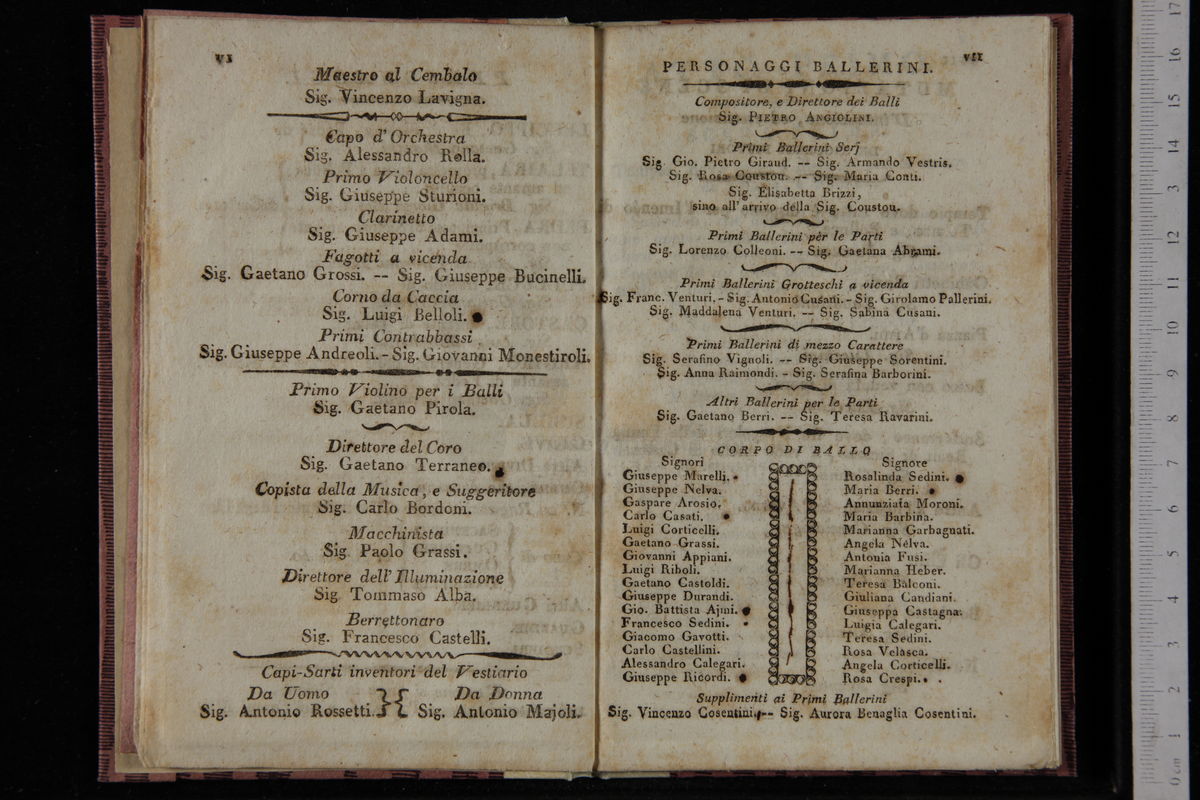 VI
Maestro al Cembalo
Sig. Vincenzo Lavigna.
Capo d'Orchestra
Sig. Alessandro Rolla.
Primo Violoncello
Sig. Giuseppe Sturioni.
Clarinetto
Sig. Giuseppe Adami.
Fagotti a vicenda
Sig. Gaetano Grossi. -- Sig. Giuseppe Bucinelli.
Corno da Caccia
Sig. Luigi Belloli.
Primi Contrabbassi
Sig. Giuseppe Andreoli. - Sig. Giovanni Monestiroli.
Primo Violino per i Balli
Sig. Gaetano Pirola.
Direttore del Coro
Sig. Gaetano Terraneo.
Copista della Musica, e Suggeritore
Sig. Carlo Bordoni.
Macchinista
Sig. Paolo Grassi.
Direttore dell'Illuminazione
Sig. Tommaso Alba.
Berrettonaro
Sig. Francesco Castelli.
Capi-Sarti inventori del Vestiario
Da Uomo Da Donna
Sig. Antonio Rossetti. Sig. Antonio Majoli.
VII
PERSONAGGI BALLERINI.
Compositore, e Direttore dei Balli
Sig. PIETRO ANGIOLINI.
Primi Ballerini Serj
Sig. Gio. Pietro Giraud. -- Sig. Armando Vestris.
Sig. Rosa Coustou. -- Sig. Maria Conti.
Sig. Elisabetta Brizzi,
sino all'arrivo della Sig. Coustou.
Primi Ballerini per le Parti
Sig. Lorenzo Colleoni. -- Sig. Gaetana Abrami.
Primi Ballerini Grotteschi a vicenda
Sig. Franc. Venturi. - Sig. Antonio Cusani. - Sig. Girolamo Pallerini.
Sig. Maddalena Venturi. -- Sig. Sabina Cusani.
Primi Ballerini di mezzo Carattere
Sig. Serafino Vignoli. -- Sig. Giuseppe Sorentini.
Sig. Anna Raimondi. - Sig. Serafina Barborini.
Altri Ballerini per le Parti
Sig. Gaetano Berri. -- Sig. Teresa Ravarini.
CORPO DI BALLO
Signori
Giuseppe Marelli.
Giuseppe Nelva.
Gaspare Arosio.
Carlo Casati.
Luigi Corticelli.
Gaetano Grassi.
Giovanni Appiani.
Luigi Riboli.
Gaetano Castoldi.
Giuseppe Durandi.
Gio. Battista Ajmi.
Francesco Sedini.
Giacomo Gavotti.
Carlo Castellini.
Alessandro Calegari.
Giuseppe Ricordi.
Signore
Rosalinda Sedini.
Maria Berri.
Annunziata Moroni.
Maria Barbina.
Marianna Garbagnati.
Angela Nelva.
Antonia Fusi.
Marianna Heber.
Teresa Balconi.
Giuliana Candiani.
Giuseppa Castagna.
Luigia Calegari.
Teresa Sedini.
Rosa Velasca.
Angela Corticelli.
Rosa Crespi.
Supplimenti ai Primi Ballerini
Sig. Vincenzo Cosentini. -- Sig. Aurora Benaglia Cosentini.
0 cm 1 2 3 4 5 6 7 8 9 10 11 12 13 14 15 16 17